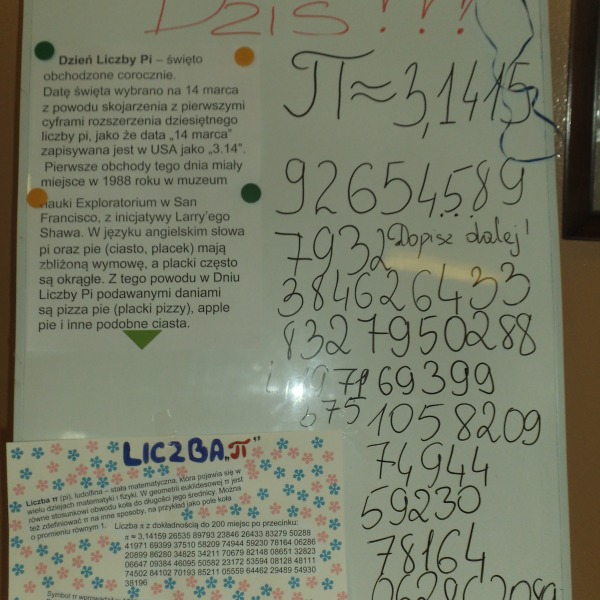 DZIŚ!!!
Dzień Liczby Pi – święto
obchodzone corocznie.
Datę święta wybrano na 14 marca
z powodu skojarzenia z pierwszymi
cyframi rozszerzenia dziesiętnego
liczby pi, jako że data „14 marca"
zapisywana jest w USA jako „3.14".
Pierwsze obchody tego dnia miały
miejsce w 1988 roku w muzeum
nauki Exploratorium w San
Francisco, z inicjatywy Larry'ego
Shawa. W języku angielskim słowa
pi oraz pie (ciasto, placek) mają
zbliżoną wymowę, a placki często
są okrągłe. Z tego powodu w Dniu
Liczby Pi podawanymi daniami
są pizza pie (placki pizzy), apple
pie i inne podobne ciasta.
π≈3,1415
92654...589
7932 Dopisz dalej!
384626433
8327950288
69399
1058209
74944
59230
78164
LICZBA „π"
Liczba π (pi), ludolfina – stała matematyczna, która pojawia się w
wielu dziejach matematyki i fizyki. W geometrii euklidesowej π jest
równe stosunkowi obwodu koła do długości jego średnicy. Można
też zdefiniować π na inne sposoby, na przykład jako pole koła
o promieniu równym 1. Liczba π z dokładnością do 200 miejsc po przecinku:
π ≈ 3,14159 26535 89793 23846 26433 83279 50288
41971 69399 37510 58209 74944 59230 78164 06286
20899 86280 34825 34211 70679 82148 08651 32823
06647 09384 46095 50582 23172 53594 08128 48111
74502 84102 70193 85211 05559 64462 29489 54930
38196
Symbol π